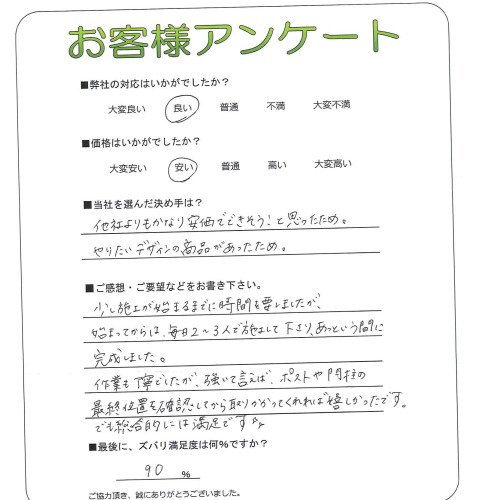 お客様アンケート
■弊社の対応はいかがでしたか？
大変良い 良い 普通 不満 大変不満
■価格はいかがでしたか？
大変安い 安い 普通 高い 大変高い
■当社を選んだ決め手は？
他社よりもかなり安価でできそう！と思ったため。
やりたいデザインの商品があったため。
■ご感想・ご要望などをお書き下さい。
少し施工が始まるまでに時間を要しましたが、
始まってからは、毎日2～3人で施工して下さり、あっという間に
完成しました。
作業も丁寧でしたが、強いて言えば、ポストや門柱の
最終位置を確認してから取りかかってくれれば嬉しかったです。
でも総合的には満足です☆
■最後に、ズバリ満足度は何%ですか？
90 %
ご協力頂き、誠にありがとうございました。